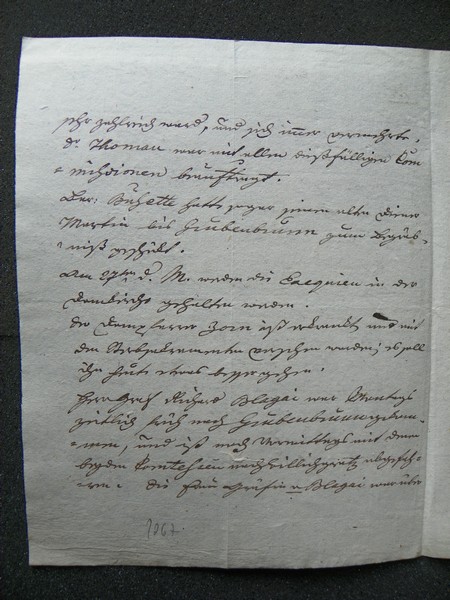 sehr zahlreich ward, und sich immer vermehrte.
Dr Thoman war mit allen dießfälligen Com¬
missionen beauftragt.
Bar: Buſsette hatte sogar seinen alten Diener
Martin bis Grubenbrunn zum Begräb¬
niß geschickt.
Am 27ten d. M. werden die Exequien in der
Domkirche gehalten werden.
Der Dompfarrer Zorn ist erkrankt und mit
den Sterbsakramenten versehen worden; es soll
ihm heute etwas besser gehen.
Herr Graf Richard Blagai war Montags
zeitlich früh nach Grubenbrunn gekom¬
men, und ist noch Vormittags mit den
beyden Comtessen nach abgefah¬
ren. die Frau Gräfin v Blagai war über
1867.